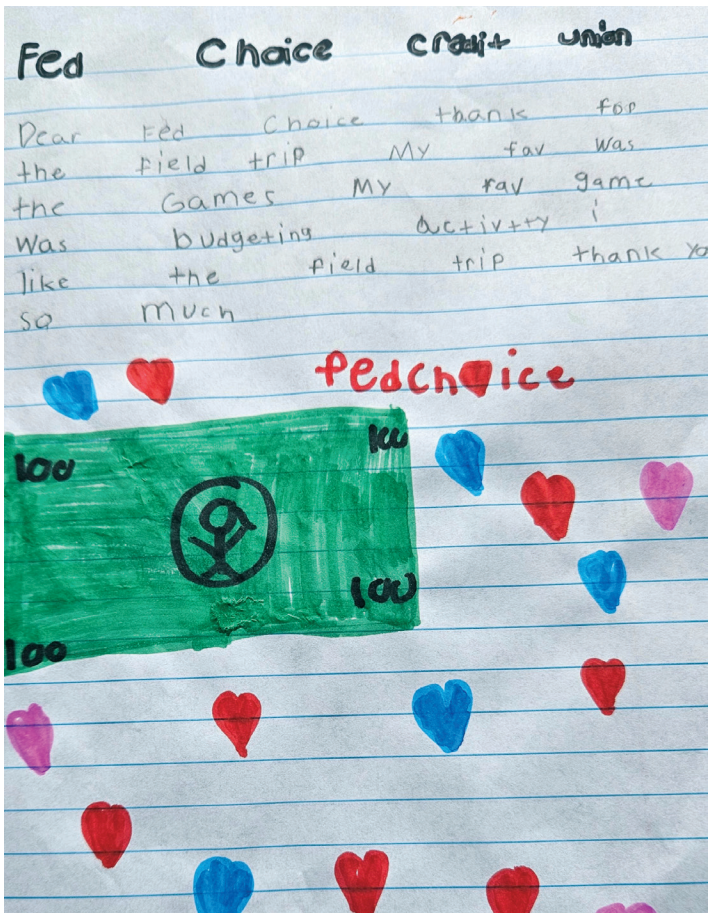 Fed Choice Credit union
Dear Fed Choice thank for
the Field trip My fav was
the Games My fav game
was budgeting activtty i
like the field trip thank yo
so much
fedchoice
100 100
100
100